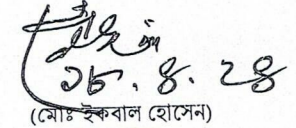 ১৮.৪.২৪
(মোঃ ইকবাল হোসেন)